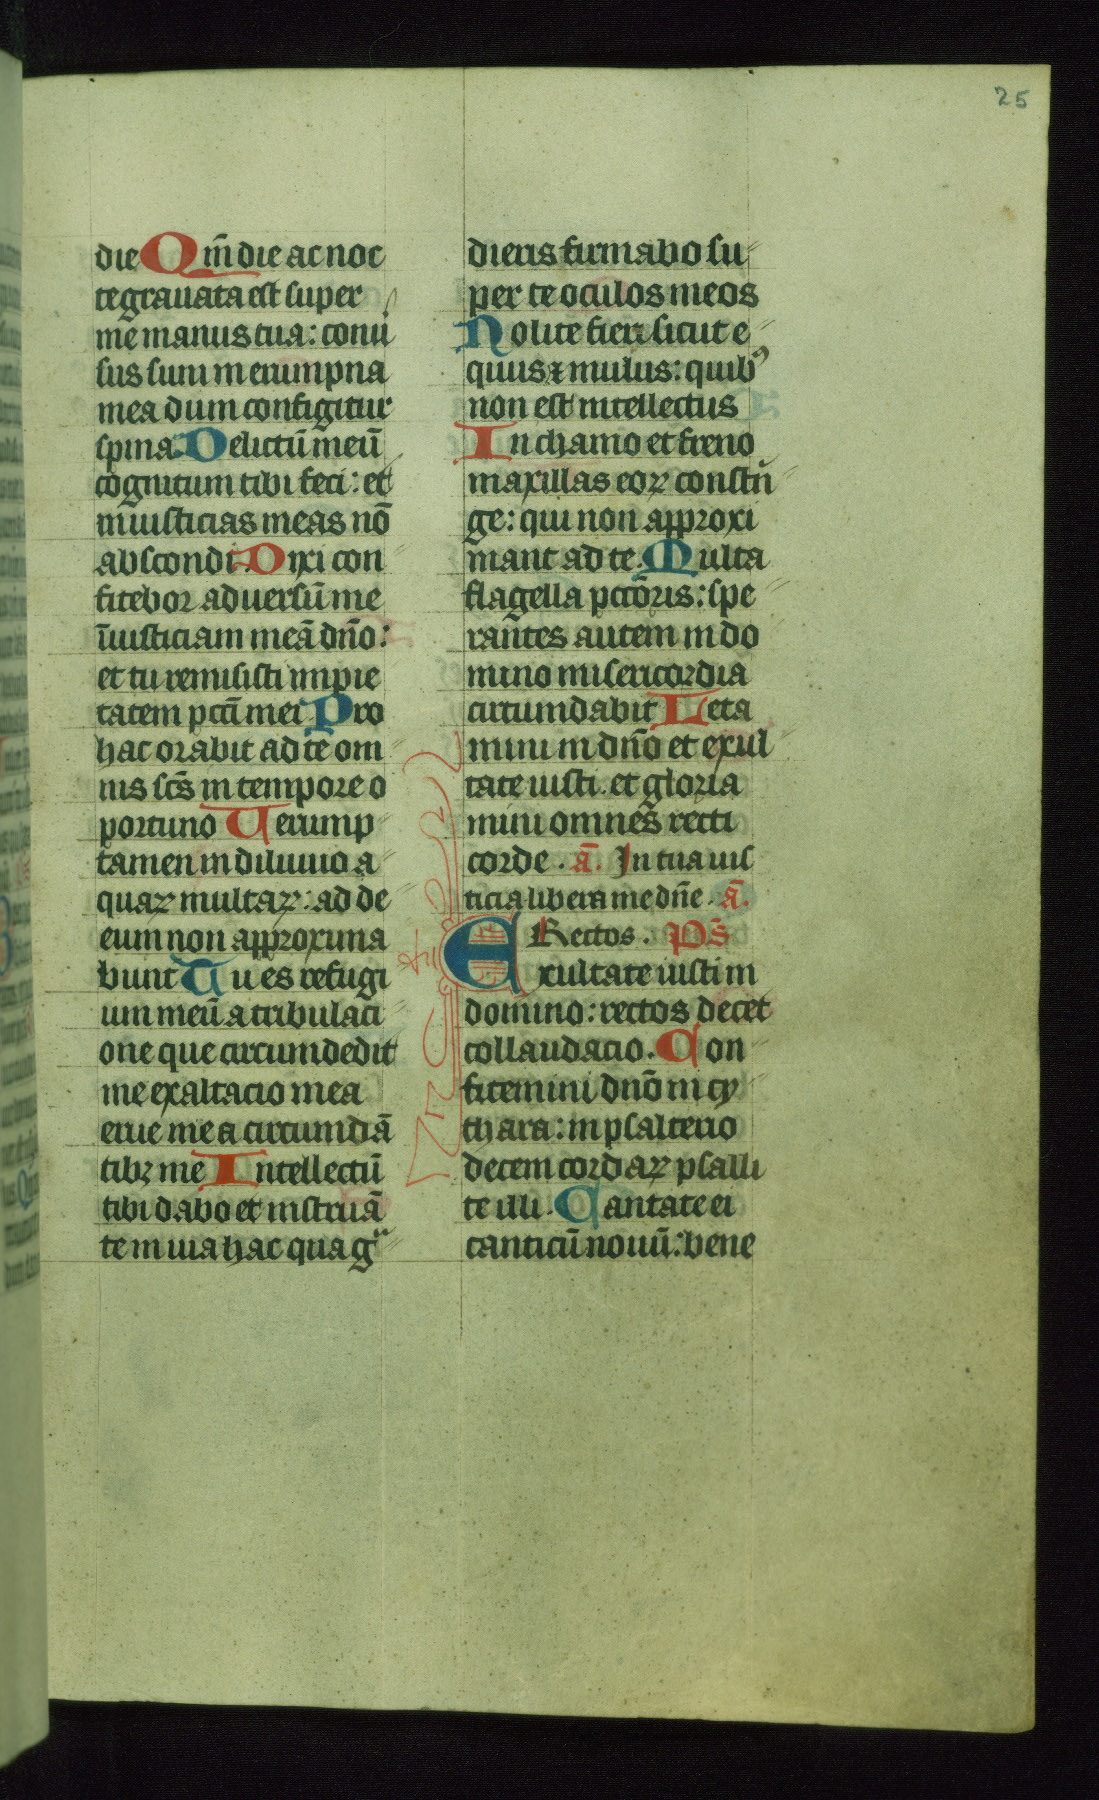 25
die Qm̄ die ac noc
te grauata est super
me manus tua: conu͛
sus sum in erumpna
mea dum configitur
spina. Delictū meū
cognitum tibi feci: et
iniusticias meas nō
abscondi. Dixi con
fitebor aduersū me
iīusticiam meā dn̄o:
et tu remisisti impie
tatem pctī mei Pro
hac orabit ad te om
nis sc̄s in tempore o
portuno Uerump
tamen in diluuio a
quaꝝ multaꝝ: ad de
eum non approxima
bunt Tu es refugi
um meū a tribulaci
one que circumdedit
me exaltacio mea
erue me a circumdā
tibꝫ me Intellectū
tibi dabo et instruā
te in uia hac qua gͣ
dieris firmabo su
per te oculos meos
Nolite fieri sicut e
quus ⁊ mulus: quibꝰ
non est intellectus
In chamo et freno
maxillas eoꝝ constri̅
ge: qui non approxi
mant ad te. Multa
flagella pctōris: spe
rantes autem in do
mino misericordia
circumdabit Leta
mini in dn̄o et exul
tate iusti. et gloria
mini omnes recti
corde. a͞. In tua ius
ticia libera me dn̄e. a͞.
Rectos. Ps̄
Exultate iusti in
domino: rectos decet
collaudacio. Con
fitemini dn̄o in cy
thara: in psalterio
decem cordaꝝ psalli
te illi. Cantate ei
canticū nouū: bene